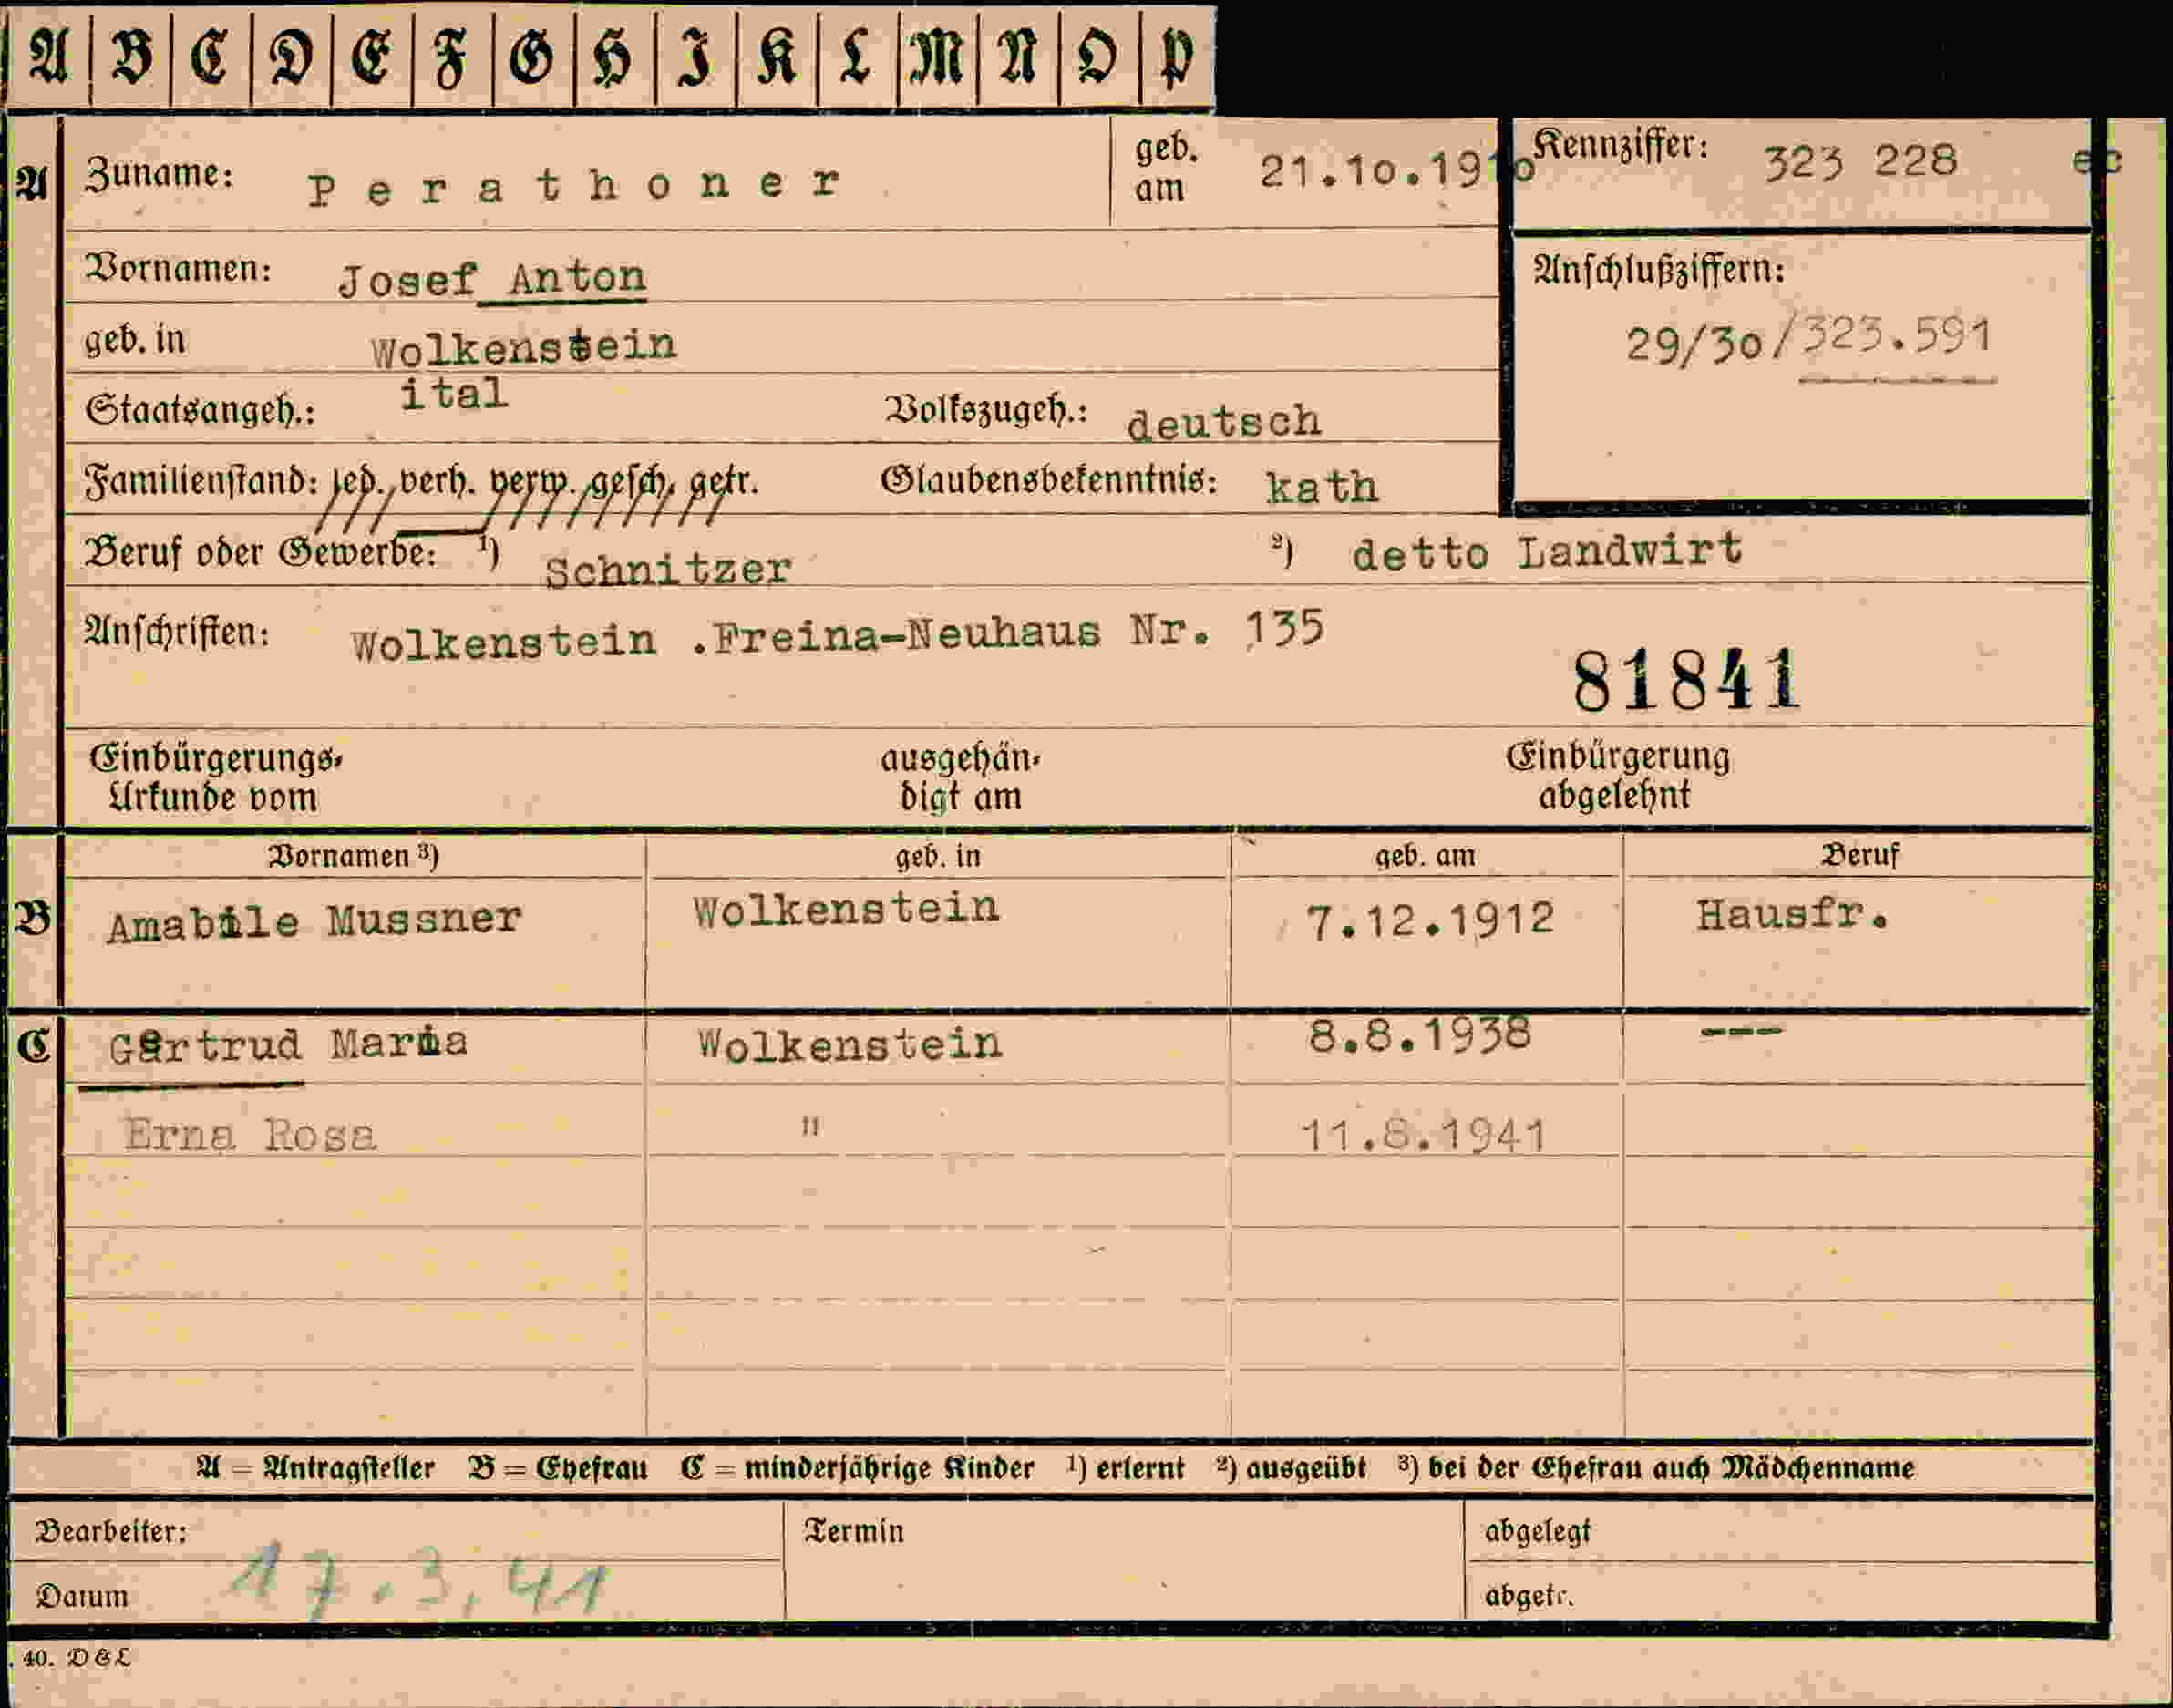 A B C D E F G H I K L M N O P
A Zuname: Perathoner geb. am 21.10.1910 Kennziffer: 323 228 ec
Vornamen: Josef Anton Anschlußziffern:
geb. in Wolkenstein 29/30/323.591
Staatsangeh.: ital Volkszugeh.: deutsch
Familienstand: led., verh. verw., gesch., getr. Glaubensbekenntnis: kath
Beruf oder Gewerbe: ¹) Schnitzer ²) detto Landwirt
Anschriften: Wolkenstein .Freina-Neuhaus Nr. 135
81841
Einbürgerungs- ausgehän- Einbürgerung
Urkunde vom digt am abgelehnt
Vornamen ³) geb. in geb. am Beruf
B Amabile Mussner Wolkenstein 7.12.1912 Hausfr.
C Gertrud Maria Wolkenstein 8.8.1938 ---
Erna Rosa " 11.8.1941
A = Antragsteller B = Ehefrau C = minderjährige Kinder ¹) erlernt ²) ausgeübt ³) bei der Ehefrau auch Mädchenname
Bearbeiter: Termin abgelegt
Datum 17.3.41 abgetr.
. 40. D & L